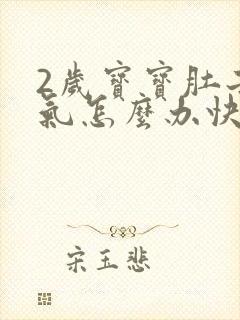 2歲寶寶肚
氣怎麼办快
宋玉悲